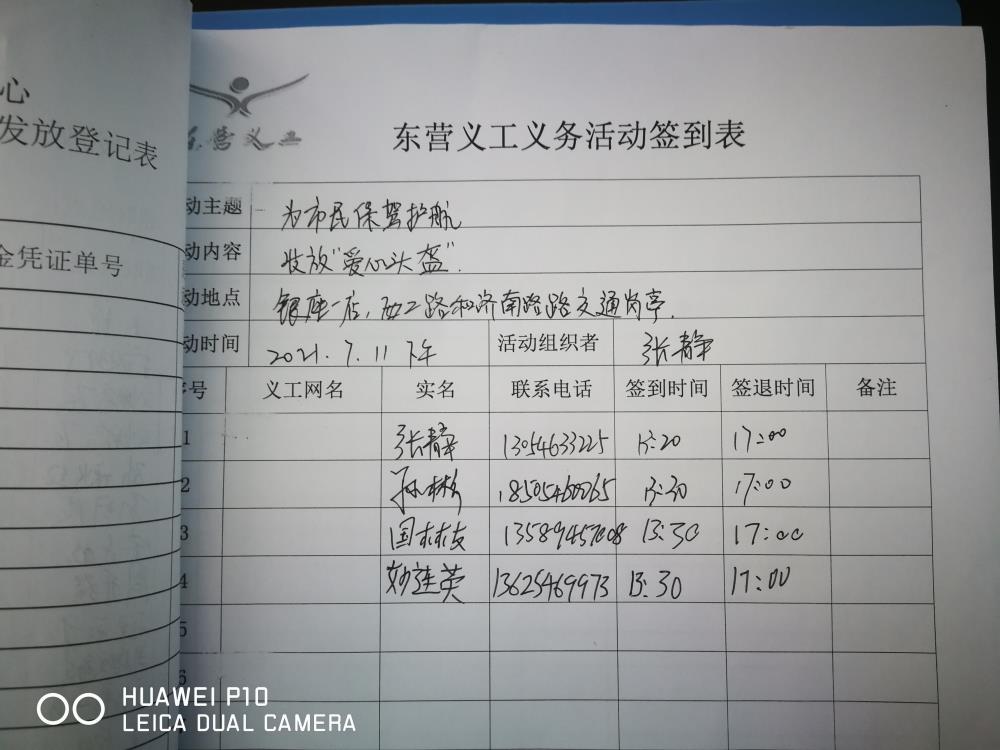 心
发放登记表
金凭证单号
东营义工
东营义工义务活动签到表
动主题 为市民保驾护航
动内容 收放"爱心头盔".
动地点 银座一店,西二路和济南路路交通岗亭.
动时间 2021.7.11 下午 活动组织者 张静
号 义工网名 实名 联系电话 签到时间 签退时间 备注
1 张静 13054633225 13:20 17:00
2 孙彬彬 18505460065 13:30 17:00
3 国林友 13589457008 13:30 17:00
4 妙莲英 13625469973 13:30 17:00
5
6
HUAWEI P10
LEICA DUAL CAMERA